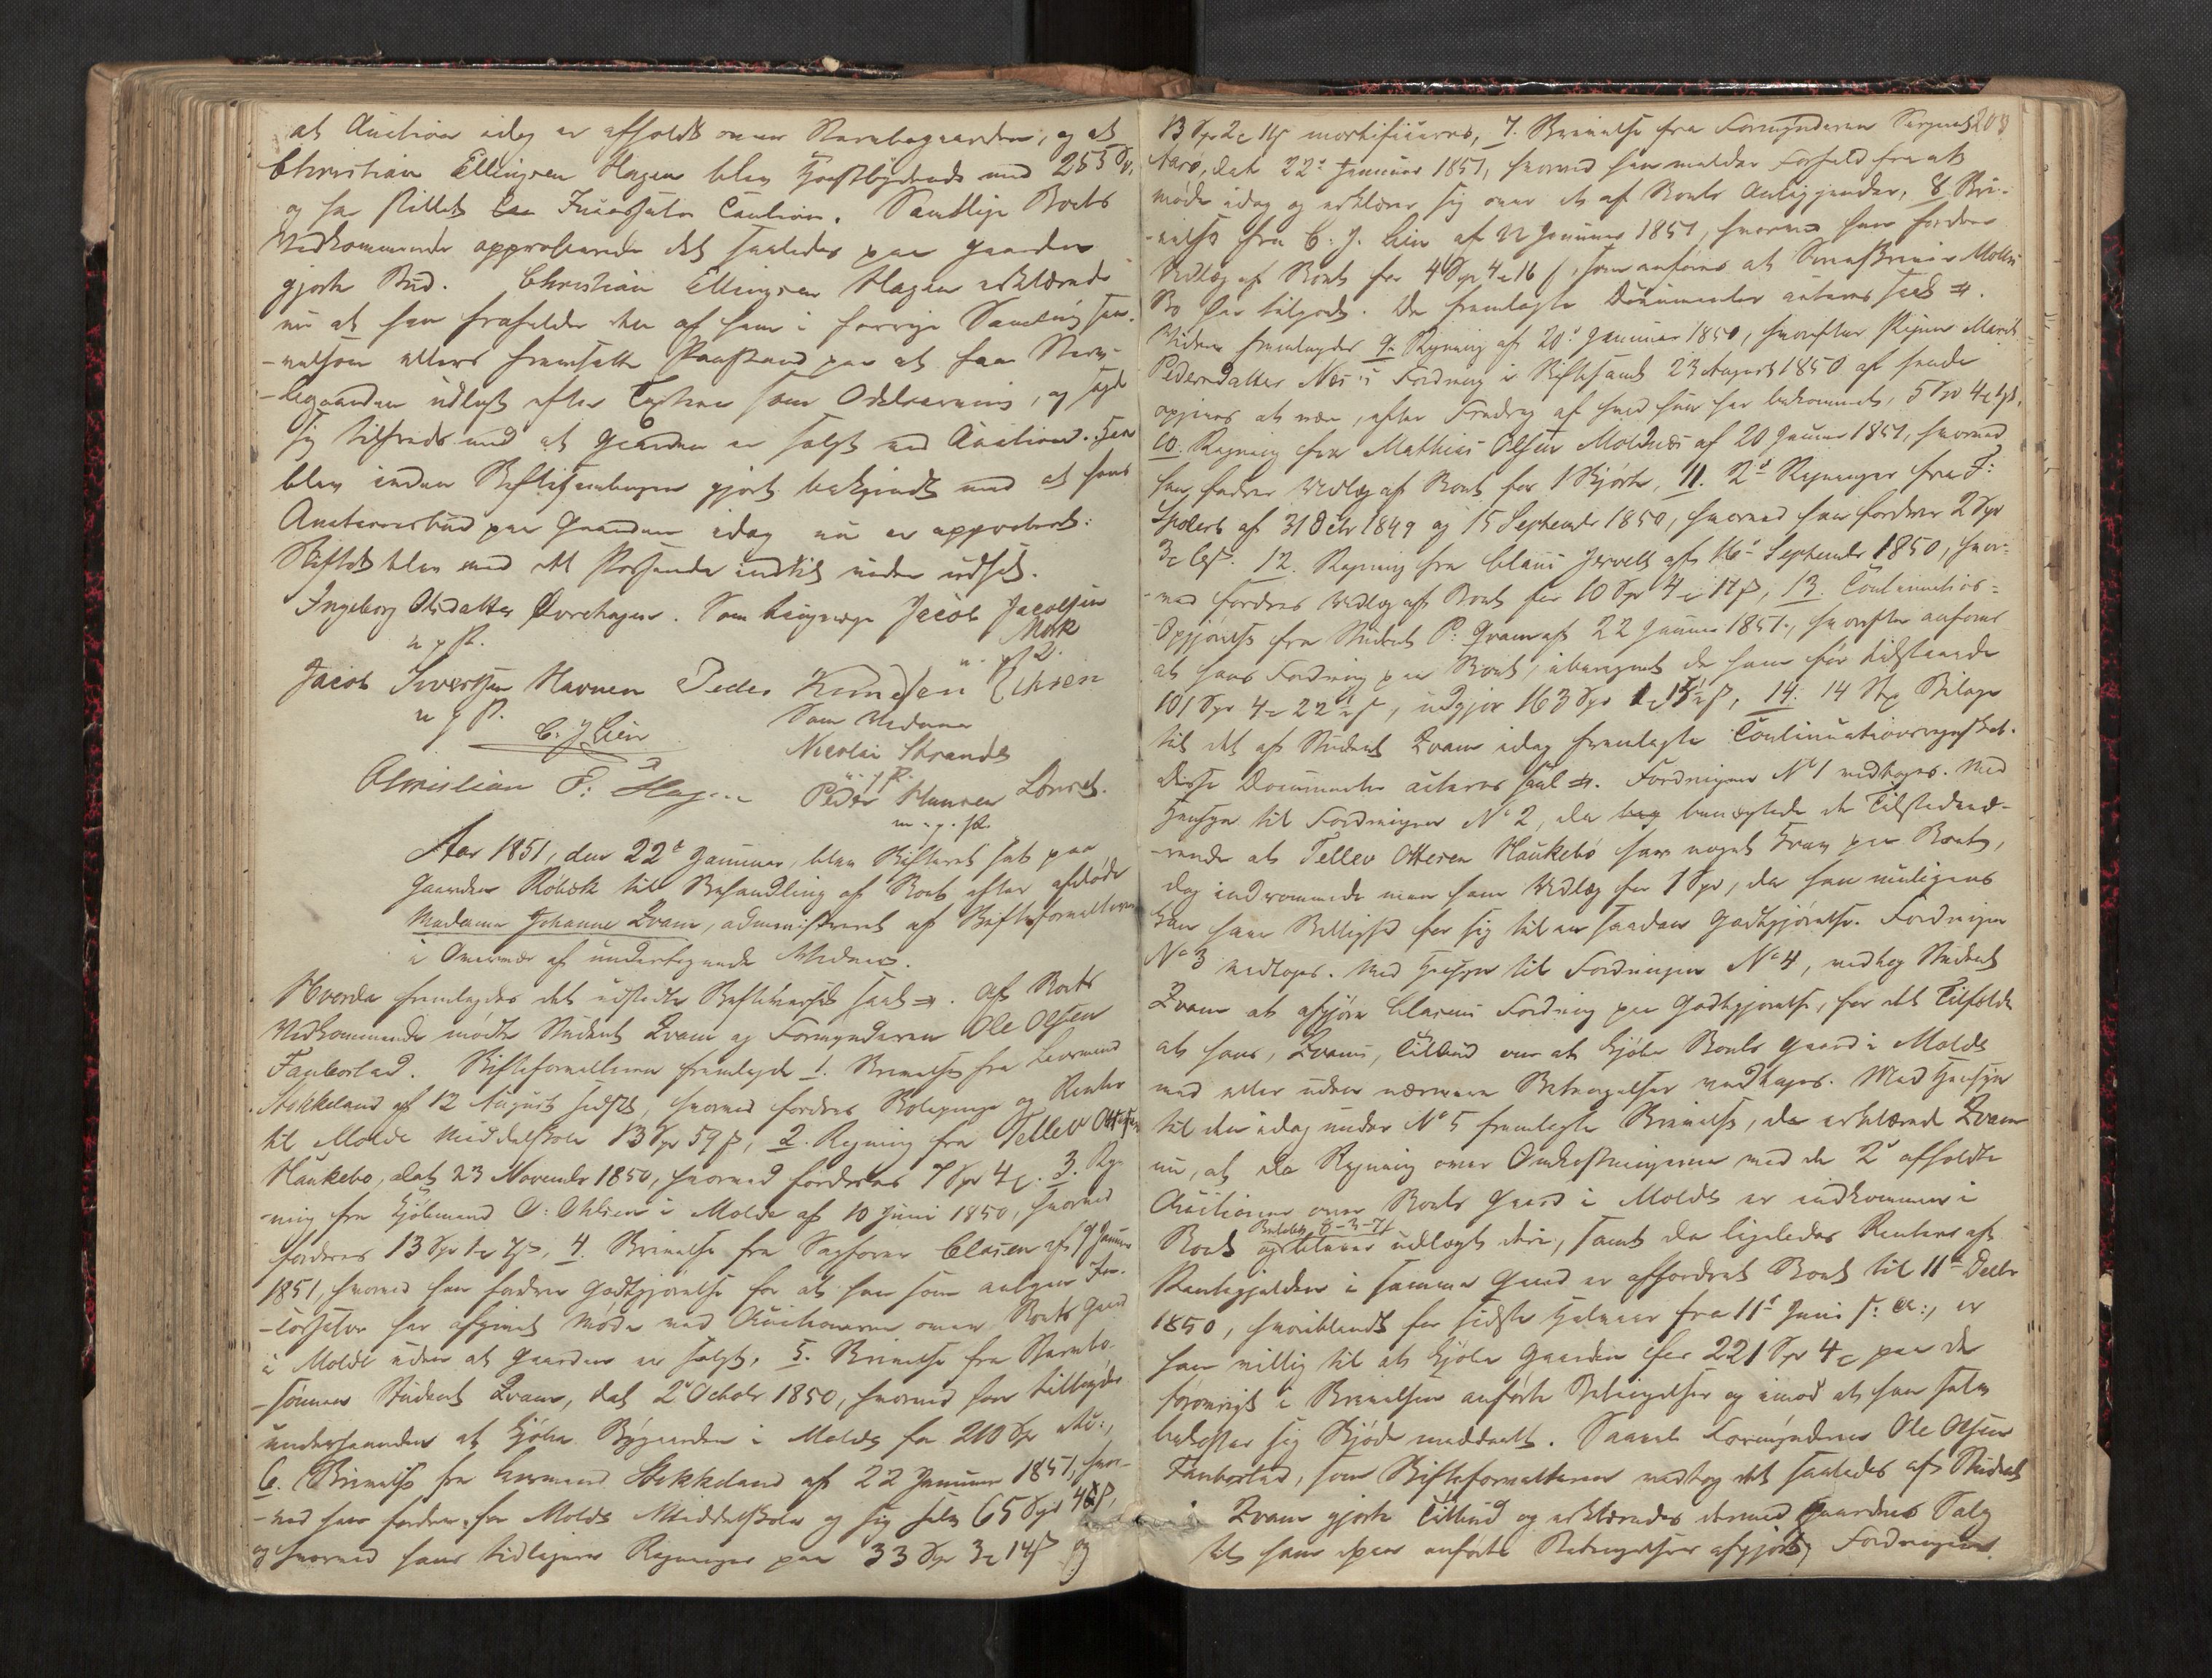 at Auction idag er afholdt over Stervbogaarden, og at
Christian Ellingsen Hagen blev Høistbydende med 255 Spd.
og har stillet Incassator Caution. Samtlige Boets
Vedkommende approberede det saaledes paa Gaarden
gjorte Bud. Christian Ellingsen Hagen erklærede
nu at han frafalder den af ham i forrige Samling
fremsatte Paastand paa at faa Sterv-
-bogaarden udlagt efter Taxten som Odelsarving, og
sig tilfreds med at Gaarden er solgt ved Auction. Han
blev inden Skiftesamlingen gjort bekjendt med at hans
Auctionsbud paa Gaarden idag nu er approberet.
Skiftet blev med det Passerede indtil videre udsat.
Ingeborg Olsdatter Dorehagen. Som Laugværge Jacob Jacobsen
m. p. P. Mork
Jacob Iversen Havnen Peder Knudsen Eikrem
m. p. P. C. J. Lien Som Vidner
Nicolai Strande
Christian E. Hagen m. p. P.
Peder Hansen Lønset.
m. p. P.
Aar 1851, den 22de Januar, blev Skifteret sat paa
Gaarden Røbæk til Behandling af Boet efter afdøde
Madame Johanne Qvam, administreret af Skifteforvalteren
i Overvær af undertegnede Vidner.
Hvorda fremlagdes det udstedte Skiftevarsel saal. Af Boets
Vedkommende mødte Student Qvam og Formynderen Ole Olsen
Fanbostad. Skifteforvalteren fremlagde 1. Skrivelse fra Kjørmand
Stokkeland af 12 August sidstl., hvorved fordres Bolepenge og Renter
til Molde Middelskole 13 Spd 59 ß, 2. Regning fra Tellev Ottesen
Haukebø, dat. 23 November 1850, hvorved fordres 7 Spd 4. 3. Reg-
-ning fra Kjøbmand O. Ohlsen i Molde af 10 Juni 1850, hvorved
fordres 13 Spd, 4. Skrivelse fra Sagfører Clasen af 19 Januar
1851, hvorved han fordrer Godtgjørelse for at han som antagen In-
-cassator har afgivet Møde ved Auctionerne over Boets Gaard
i Molde uden at Gaarden er solgt, 5. Skrivelse fra Stervbo-
-sønnen Student Qvam, dat. 2 Octobr 1850, hvorved han tilbyder
underhaanden at kjøbe Bygaarden i Molde for 210 Spd
6. Skrivelse fra Stokkeland af 22 Januar 1851, hvor-
-ved han fordrer for Molde Middelskole og sig selv 65 Spd
og hvorved hans tidligere Regninger paa 33 Spd 3 14 ß og
208
13 Spd 2 11 ß mortificeres, 7. Skrivelse fra Formynderen Sergeant
Aarø, dat. 22de Januar 1851, hvorved han melder Forfald fra at
møde idag og erklærer sig over et af Boets Anliggender, 8. Skri-
-velse fra C. J. Lien af 22 Januar 1851, hvorved han fordrer
Udlæg af Boet for 4 Spd 4 16 ß, som anføres at
Bo har tilgode. De fremlagte Documenter acteres saal.
Videre fremlagdes 9. Regning af 20de Januar 1850, hvorefter Pigen Marit
Pedersdatter Næs's Fordring i Skiftesaml. 23 August 1850 af hende
opgives at være, efter Fradrag af hvad hun har bekommet, 5 Spd 4
10. Regning fra Mathias Olsen Moldnæs af 20 Januar 1851, hvorved
han fordrer Udlæg af Boet for 1 Skjorte, 11. 2de Regninger fra F.
af 31 Octbr 1849 og 15 Septembr 1850, hvorved han fordrer 2 Spd
3. 12. Regning fra Claus Jervell af 16de Septembr 1850, hvor-
-ved fordres Udlæg af Boet for 10 Spd 4 17 ß, 13. Continuations-
Opgjørelse fra Student P. Qvam af 22 Januar 1851, hvorefter anføres
at hans Fordring paa Boet, iberegnet de ham før tilstaaede
101 Spd 4 22½ ß, udgjør 163 Spd 1 15½ ß, 14. 14 Stk Bilage
til det af Student Qvam idag fremlagte Continuationsregnskab.
Disse Documenter acteres saal. Fordringen No 1 vedtoges. Med
Hensyn til Fordringen No 2, da benægtede de Tilstedevæ-
-rende at Tellev Ottesen Haukebø har noget Krav paa Boet,
dog indrømmede man ham Udlæg for 1 Spd, da han muligens
kan have Billighed for sig til en saadan Godtgjørelse. Fordringen
No 3 vedtoges. Med Hensyn til Fordringen No 4, vedtog Student
Qvam at afgjøre Clasens Fordring paa Godtgjørelse, for det Tilfælde
at hans, Qvams, Tilbud om at kjøbe Boets Gaard i Molde
med eller uden nærmere Betingelser vedtages. Med Hensyn
til den idag under No 5 fremlagte Skrivelse, da erklærede Qvam
nu, at da Regning over Omkostningerne ved de 2de afholdte
Auctioner over Boets Gaard i Molde er indkommen i
Boet og udlagt deri, samt da ligeledes Renterne af
Pantegjælden i samme Gaard er affordret Boet til 11te Decbr
1850, hvoriblandt for sidste Halvaar fra 11te Juni s. A., er
han villig til at kjøbe Gaarden for 221 Spd 4 paa de
forøvrigt i Skrivelsen anførte Betingelser og imod at han selv
bekoster sig Skjøde meddeelt. Saavel Formynderen Ole Olsen
Fanbostad, som Skifteforvalteren vedtog det saaledes af Student
Qvam gjorte Tilbud og erklæredes derved Gaardens Salg
til ham paa anførte Betingelser afgjort. Fordringen